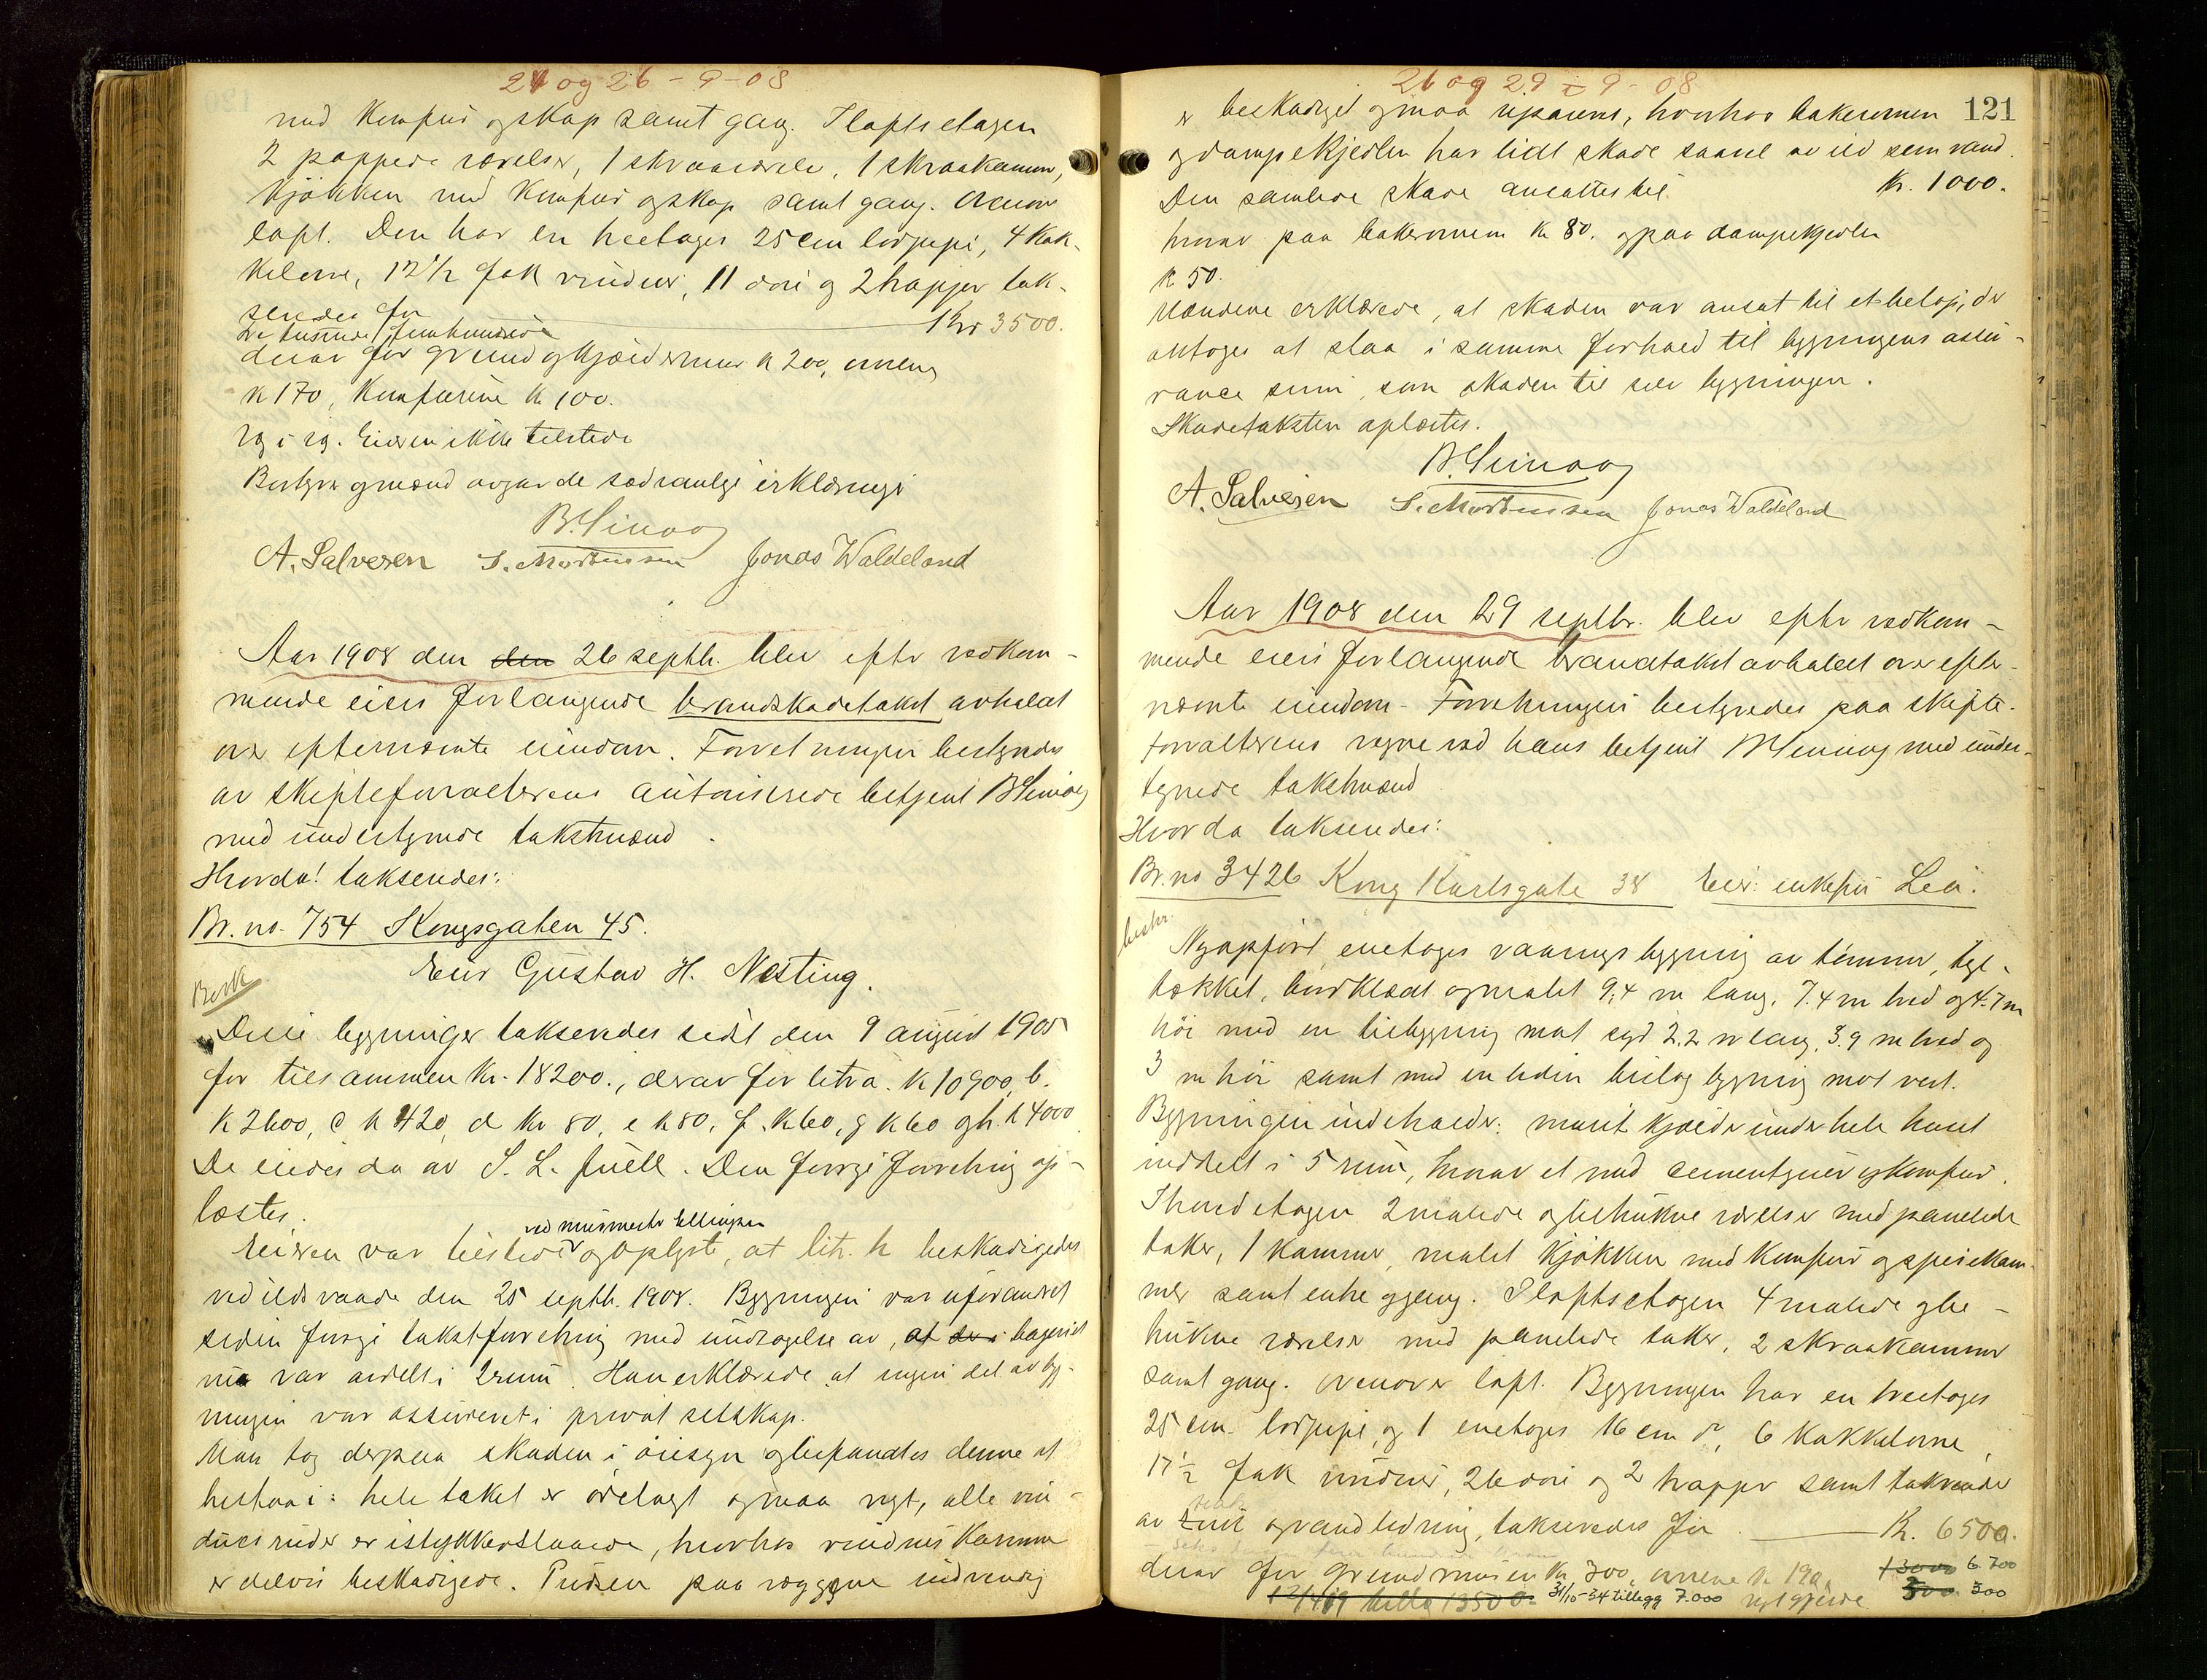 24 og 26-9-08
med komfur og skap samt gang. I loftsetagen
2 pappede værelser, 1 skraaværelse, 1 skraakammer,
kjøkken med komfur og skap samt gang. Ovenover
loft. Den har en treetages 25 cm lodpipe, 4 kak-
kelovne, 12 1/2 fak vinduer, 11 døre og 2 trapper tak-
seredes for Kr 3500.
tre tusende femhundrede
derav for grund og kjeldermur k 200, ovnene
k 170, komfurene k 100.
Eieren ikke tilstede
Bestyrer og mænd avgav de sædvanlige erklæringer
A. Salvesen S. Mortensen Jonas Waldeland
Aar 1908 den den 26 septbr. blev efter vedkom-
mende eiers forlangende brandskadetakst avholdt
over efternævnte eiendom. Forretningen bestyredes
av skifteforvalterens autoriserede betjent
med undertegnede takstmænd.
Hvorda! takseredes:
Br. no. 754 Kongsgaten 45.
Eier Gustav H. Nesting.
Besk
Disse bygninger takseredes sidst den 9 august 1905
for tilsammen kr. 18200., derav for litra a. k 10900, b.
k 2600, c k 420, d kr 80, e k 80, f. k 60, g k 60 og h. k 4000
De eiedes da av S. L. Juell. Den forrige forretning op-
læstes.
ved murmester Ellingsen
Eieren var tilstede og oplyste, at litr. h beskadigedes
ved ildsvaade den 25 septbr. 1908. Bygningen var uforandret
siden forrige takstforretning med undtagelse av, at der i bageriet
nu var avdelt i 2 rum. Han erklærede at ingen del av byg-
ningen var assureret i privat selskap.
Man tog derpaa skaden i øiesyn og befandtes denne at
bestaa i: hele taket er ødelagt og maa nyt, alle vin-
duesruder er istykkerslaaede, hvorhos vindueskarmene
er delvis beskadigede. Pudsen paa væggene indvendig
26 og 29-9-08
121
er beskadiget og maa repareres, hvorhos bakerovnen
og dampekjedlen har lidt skade saavel av ild som vand.
Den samlede skade ansattes til kr. 1000.
hvorav paa bakerovnen kr 80. og paa dampekjedlen
k 50.
Mændene erklærede, at skaden var ansat til et beløp, der
antoges at staa i samme forhold til bygningens assu-
rance sum, som skaden til selve bygningen.
Skadetaksten oplæstes.
A. Salvesen S. Mortensen Jonas Waldeland
Aar 1908 den 29 septbr. blev efter vedkom-
mende eiers forlangende brandtakst avholdt over efter-
nævnte eiendom. Forretningen bestyredes paa skifte-
forvalterens vegne ved hans betjent med under-
tegnede takstmænd
Hvor da takseredes:
Br. no 3426 Kong Karlsgate 38 Eier: enkefru Lea.
beskr.
Nyopført enetages vaaningsbygning av tømmer, tegl-
tækket, bordklædt og malet 9,4 m lang, 7.4 m bred og 4.7 m
høi med en tilbygning mot syd 2.2 m lang, 3.9 m bred og
3 m høi samt med en liden tilbygning mot vest.
Bygningen indeholder: muret kjelder under hele huset
inddelt i 5 rum, hvorav et med cementgulv og komfur.
I hovedetagen 2 malede og betrukne værelser med panelede
taker, 1 kammer, malet kjøkken med komfur og spisekam-
mer samt entre og gang. I loftsetagen 4 malede og be-
trukne værelser med panelede taker, 2 skraakammer
samt gang. Ovenover loft. Bygningen har en treetages
25 cm. lodpipe, og 1 enetages 16 cm do, 6 kakkelovne,
17 1/2 fak vinduer, 26 døre og 2 trapper samt takrender
av zink og vandledning, takseredes for K. 6500.
derav for grundmuren kr 300, ovnene k 190, 13000 6 700
12/4 19 tillæg 13500. 31/10-34 tillegg 7.000 nyt gjerde 500 300